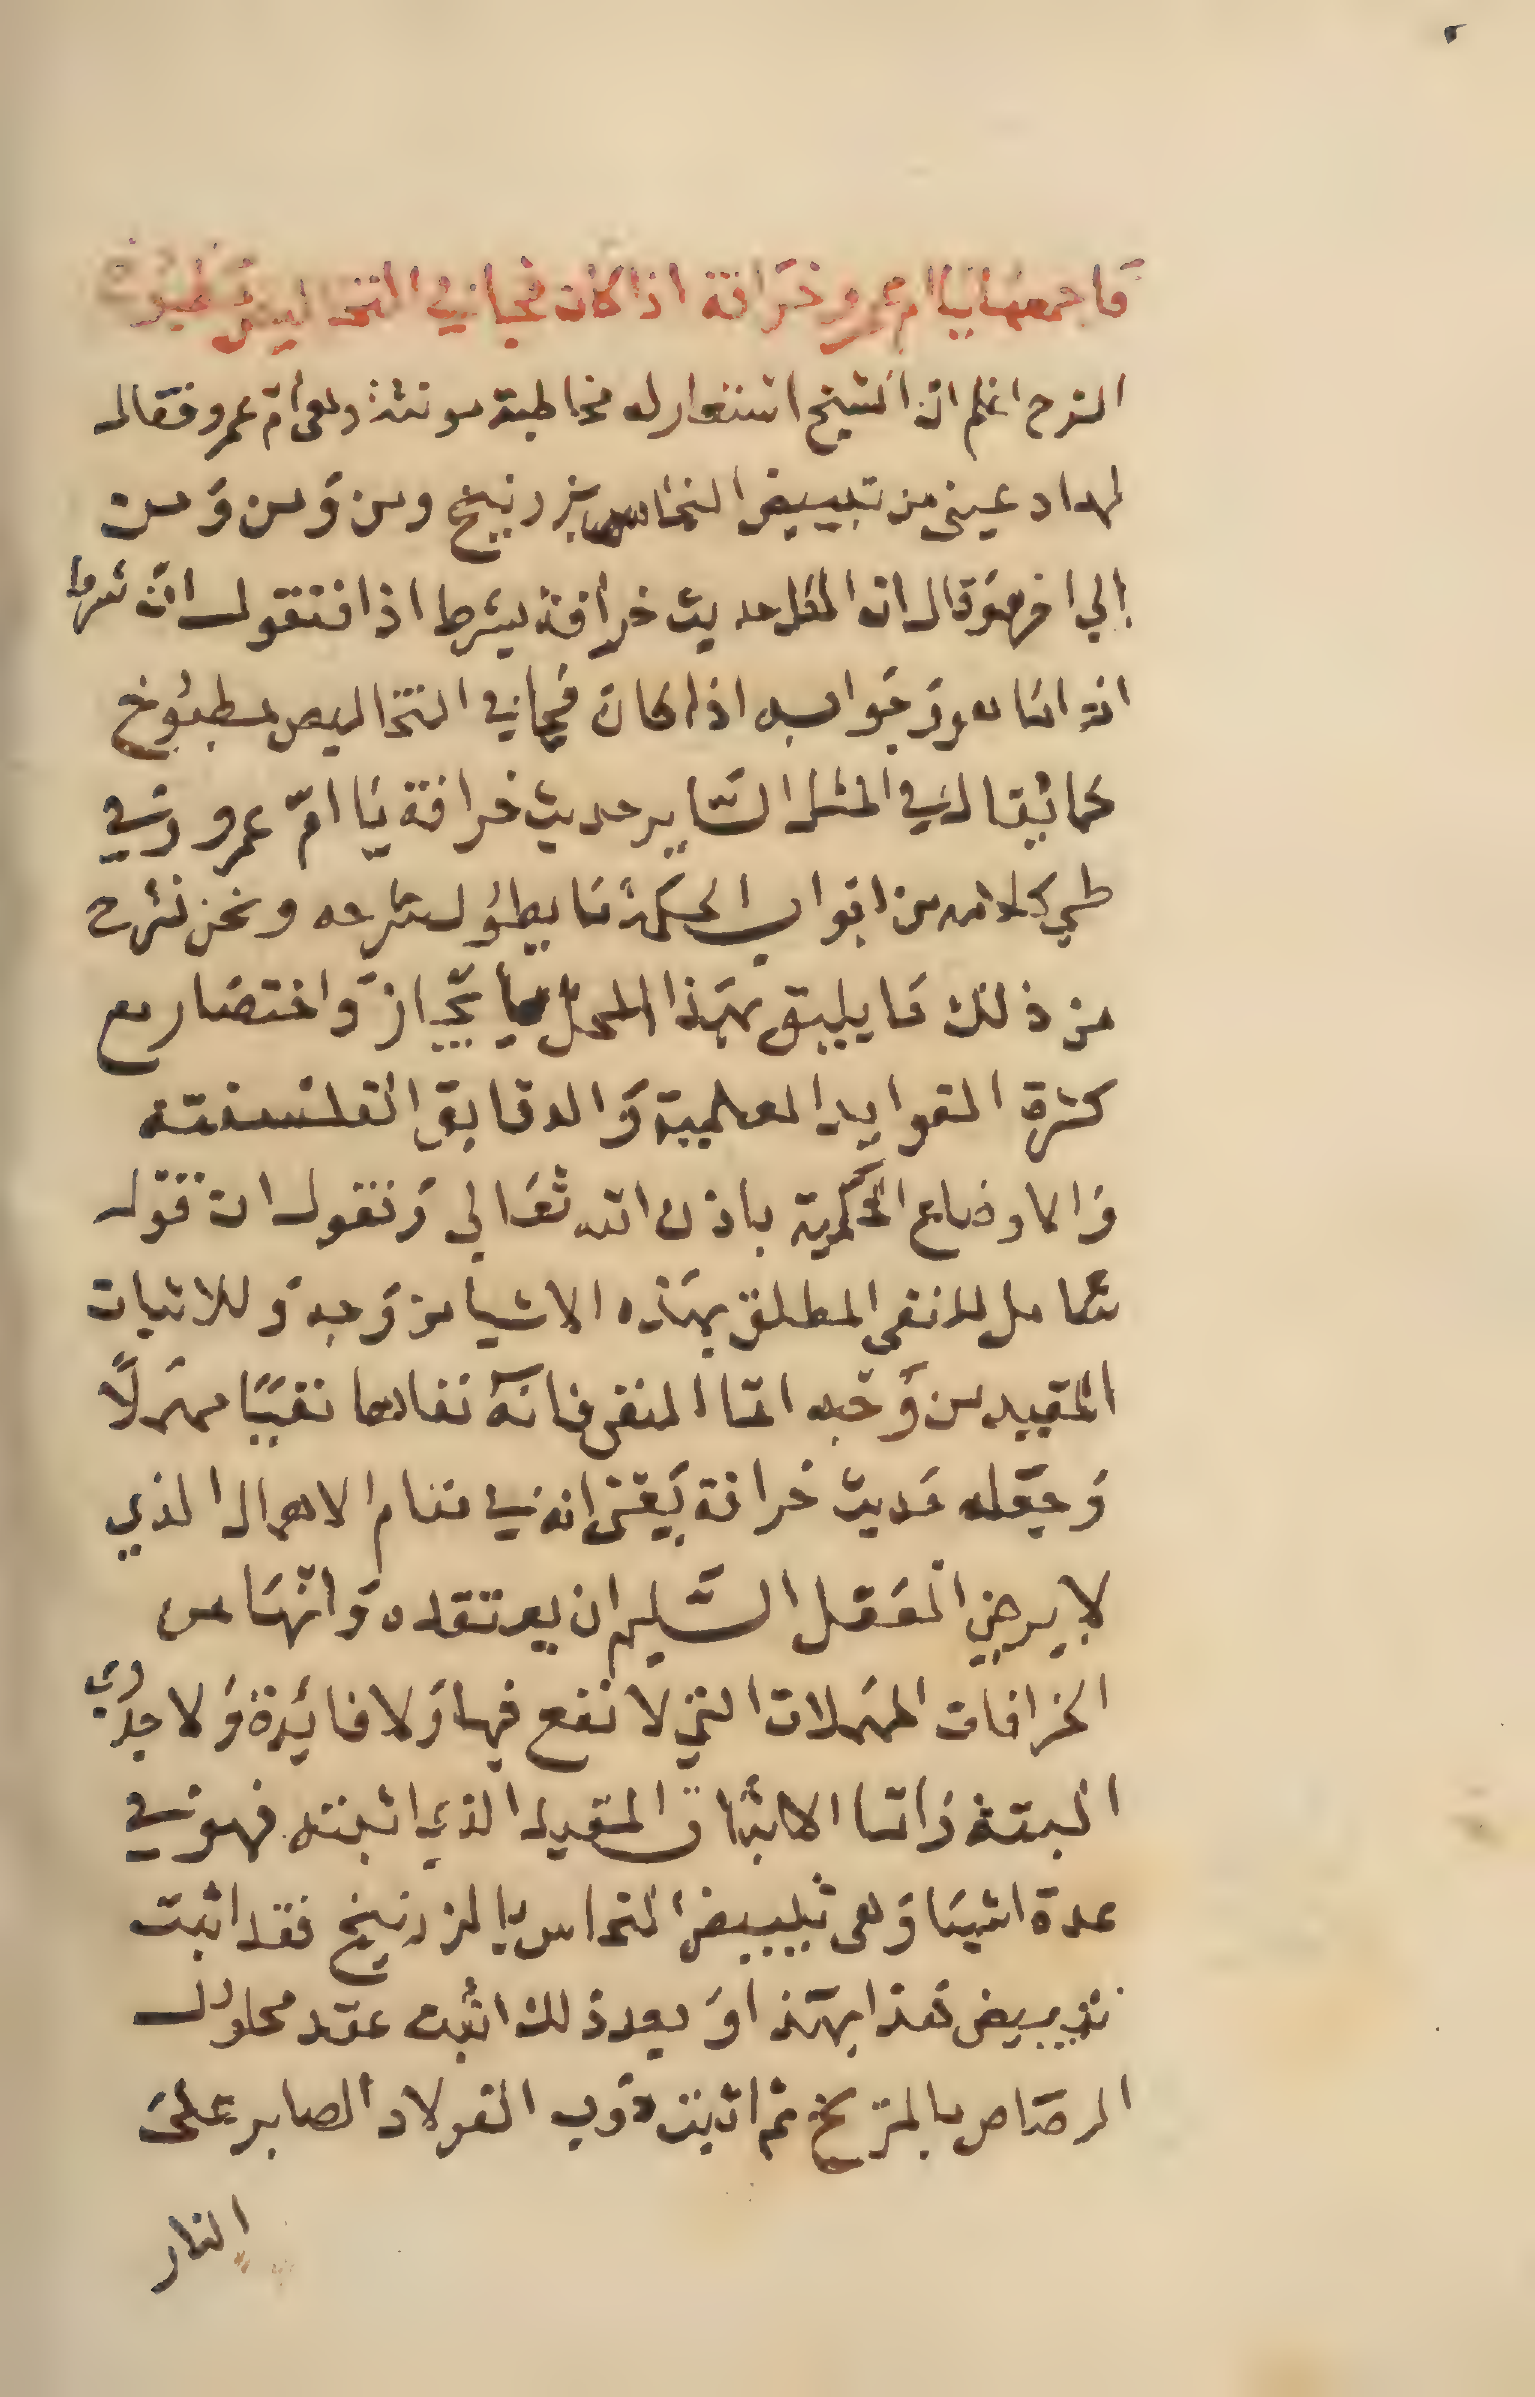 فاجمعها يا ام عمرو خرافة اذا كان فجا في التخاليص مطبوخ
الشرح اعلم ان الشيخ استعار له مخاطبة مونثة وهي أم عمرو فقال
لها دعيني من تبييض النحاس بزرنيخ ومن وَمن وَمن
الي اخرهَ وَقال ان الكل حديث خرافة بشرط اذا فنقول ان شرط
اذا كان فجا في التخاليص مطبوخ
كما يقال في المثل السَّاير حديث خرافة يَا امّ عمرو وفي
طي كلامه من ابواب الحكمة مَا يطول شرحه ونحن نشرح
من ذلك مَا يليق بهَذا المحل بايجاز وَاختصَار مع
كثرة الفوايد العلمية وَالدقايق الفلسفية
وَالاوضاع الحكمية باذن الله تعَالي وَنقول ان قوله
شامل للنفي المطلق بهَذه الاشيا من وَجه وَللاثبات
المقيد من وَجه امّا النفي فانه نفاها نفيًا مهَملًا
وَجعَله حَديث خرافة يَعني انه في مقام الاهمال الذي
لا يرضي العَقل السَّليم ان يعتقده وَانهَا من
الخرافات المهَملات التي لا نفع فيها وَلا فايَدة وَلا جدوي
البتة وَامّا الاثبات المقيد الذي اثبته فهو في
عدة اشيَا وَهي تبييض النحاس بالزرنيخ فقد اثبت
تبييض هَذا بهَذا وَبعد ذلك اثبت عقد محلول
الرصَاص بالمريخ ثم اثبت ذوب الفولاد الصابر علي
النار